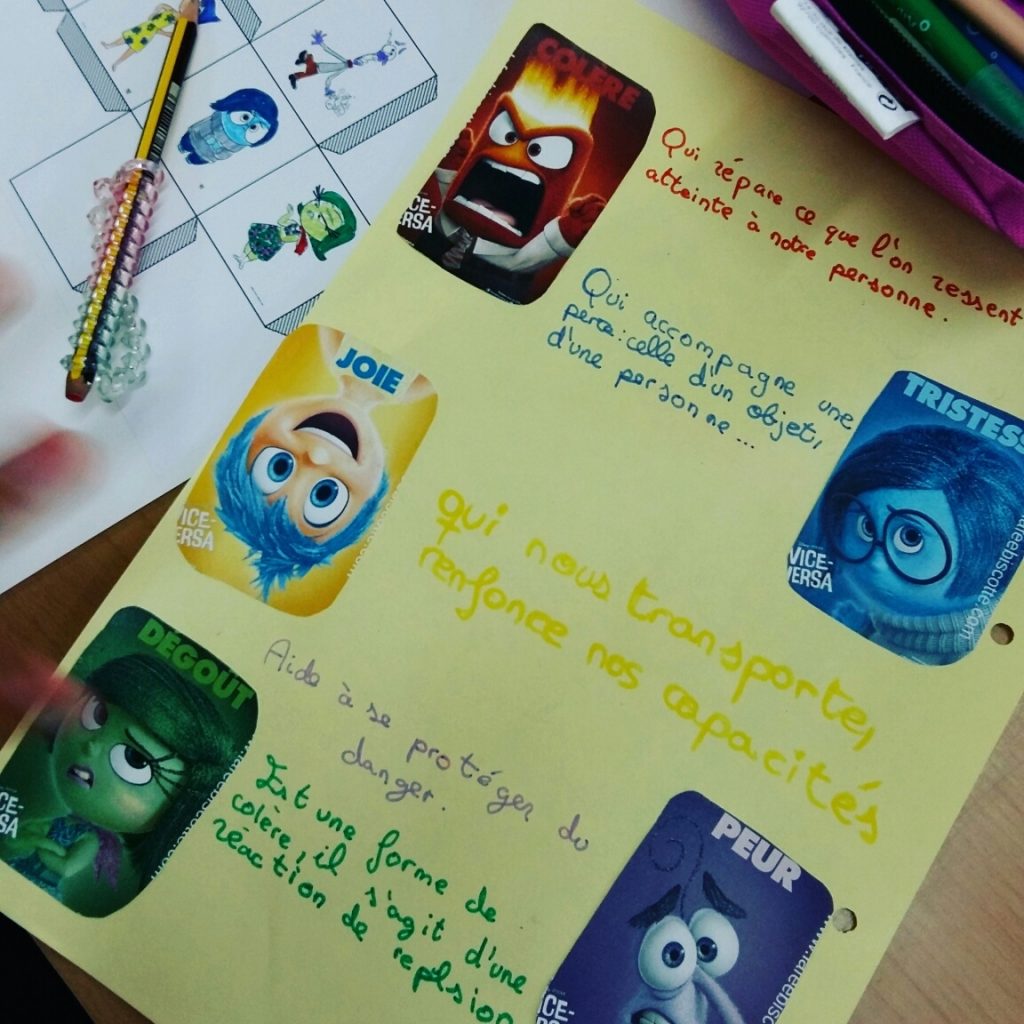 COLÈRE
VICE-
VERSA
Qui répare ce que l'on ressent
atteinte à notre personne.
Qui accompagne une
perte: celle d'un objet,
d'une personne...
TRISTESS
VICE-
VERSA
areebiscotte.com
JOIE
ICE-
ERSA
qui nous transporte,
renfonce nos capacités
DÉGOUT
CE-
SA
Aide à se protéger du
danger.
Est une forme de
colère, il s'agit d'une
réaction de replsion
PEUR
ICE-
VERSA